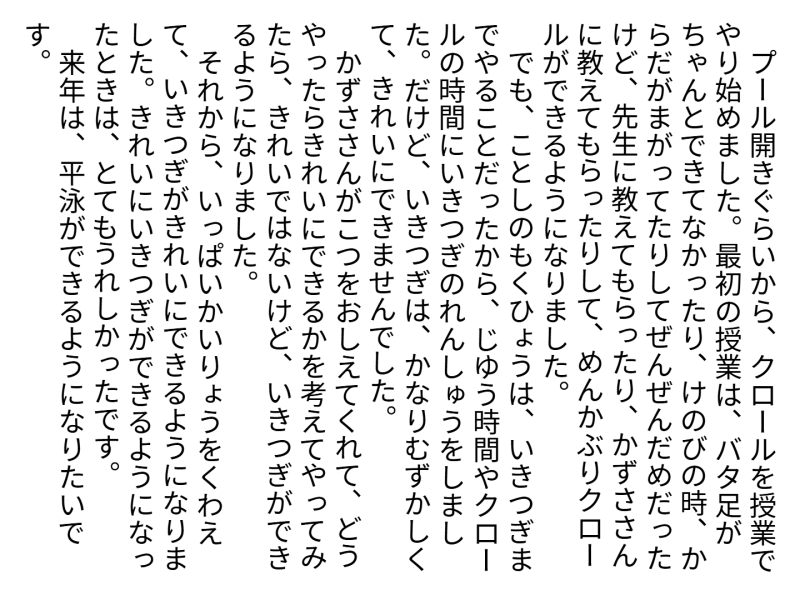 プール開きぐらいから、クロールを授業で
やり始めました。最初の授業は、バタ足が
ちゃんとできてなかったり、けのびの時、か
らだがまがってたりしてぜんぜんだめだった
けど、先生に教えてもらったり、かずささん
に教えてもらったりして、めんかぶりクロー
ルができるようになりました。
でも、ことしのもくひょうは、いきつぎま
でやることだったから、じゆう時間やクロー
ルの時間にいきつぎのれんしゅうをしまし
た。だけど、いきつぎは、かなりむずかしく
て、きれいにできませんでした。
かずささんがこつをおしえてくれて、どう
やったらきれいにできるかを考えてやってみ
たら、きれいではないけど、いきつぎができ
るようになりました。
それから、いっぱいかいりょうをくわえ
て、いきつぎがきれいにできるようになりま
した。きれいにいきつぎができるようになっ
たときは、とてもうれしかったです。
来年は、平泳ができるようになりたいで
す。